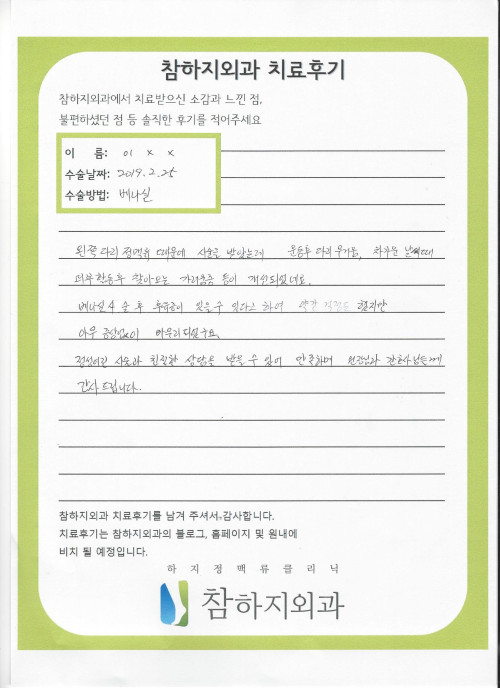 참하지외과 치료후기
참하지외과에서 치료받으신 소감과 느낀 점,
불편하셨던 점 등 솔직한 후기를 적어주세요
이 름: 이 x x
수술날짜: 2019. 2. 25
수술방법: 베나실
왼쪽다리 정맥류 때문에 시술을 받았는데 운동후 다리 무거움, 차가운 날씨때
피부활동후 찾아오는 가려움증 등이 개선되었네요.
베나실 시술 후 후유증이 있을 수 있다고 하여 약간 했지만
아무 증상없이 마무리되었구요.
정성어린 시술과 친절한 상담을 받을 수 있어 만족하며 원장님과 간호사님들께
감사드립니다.
참하지외과 치료후기를 남겨 주셔서 감사합니다.
치료후기는 참하지외과의 블로그, 홈페이지 및 원내에
비치 될 예정입니다.
하지정맥류클리닉
참하지외과